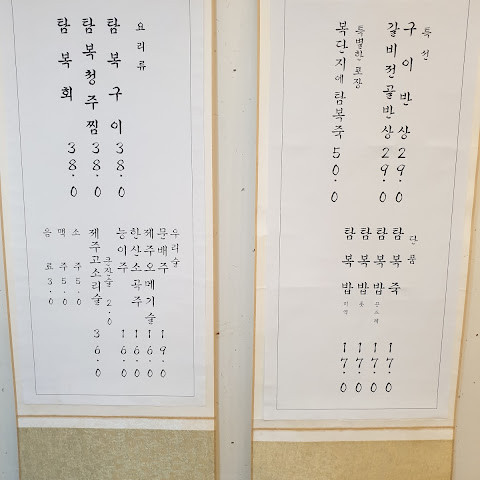 특선
구이반상 29.0
갈비전골반상 29.0
특별한 포장
복단지에 탐복죽 50.0
단품
탐복죽 17.0
탐복밥 17.0
탐복밥 17.0
탐복밥 17.0
요리류
탐복구이 38.0
탐복청주찜 38.0
탐복회 38.0
우리술
문배주 19.0
제주오메기술 16.0
한산소곡주 16.0
능이주 16.0
큰잔술 2.0
제주고소리술 36.0
소주 5.0
맥주 5.0
음료 3.0